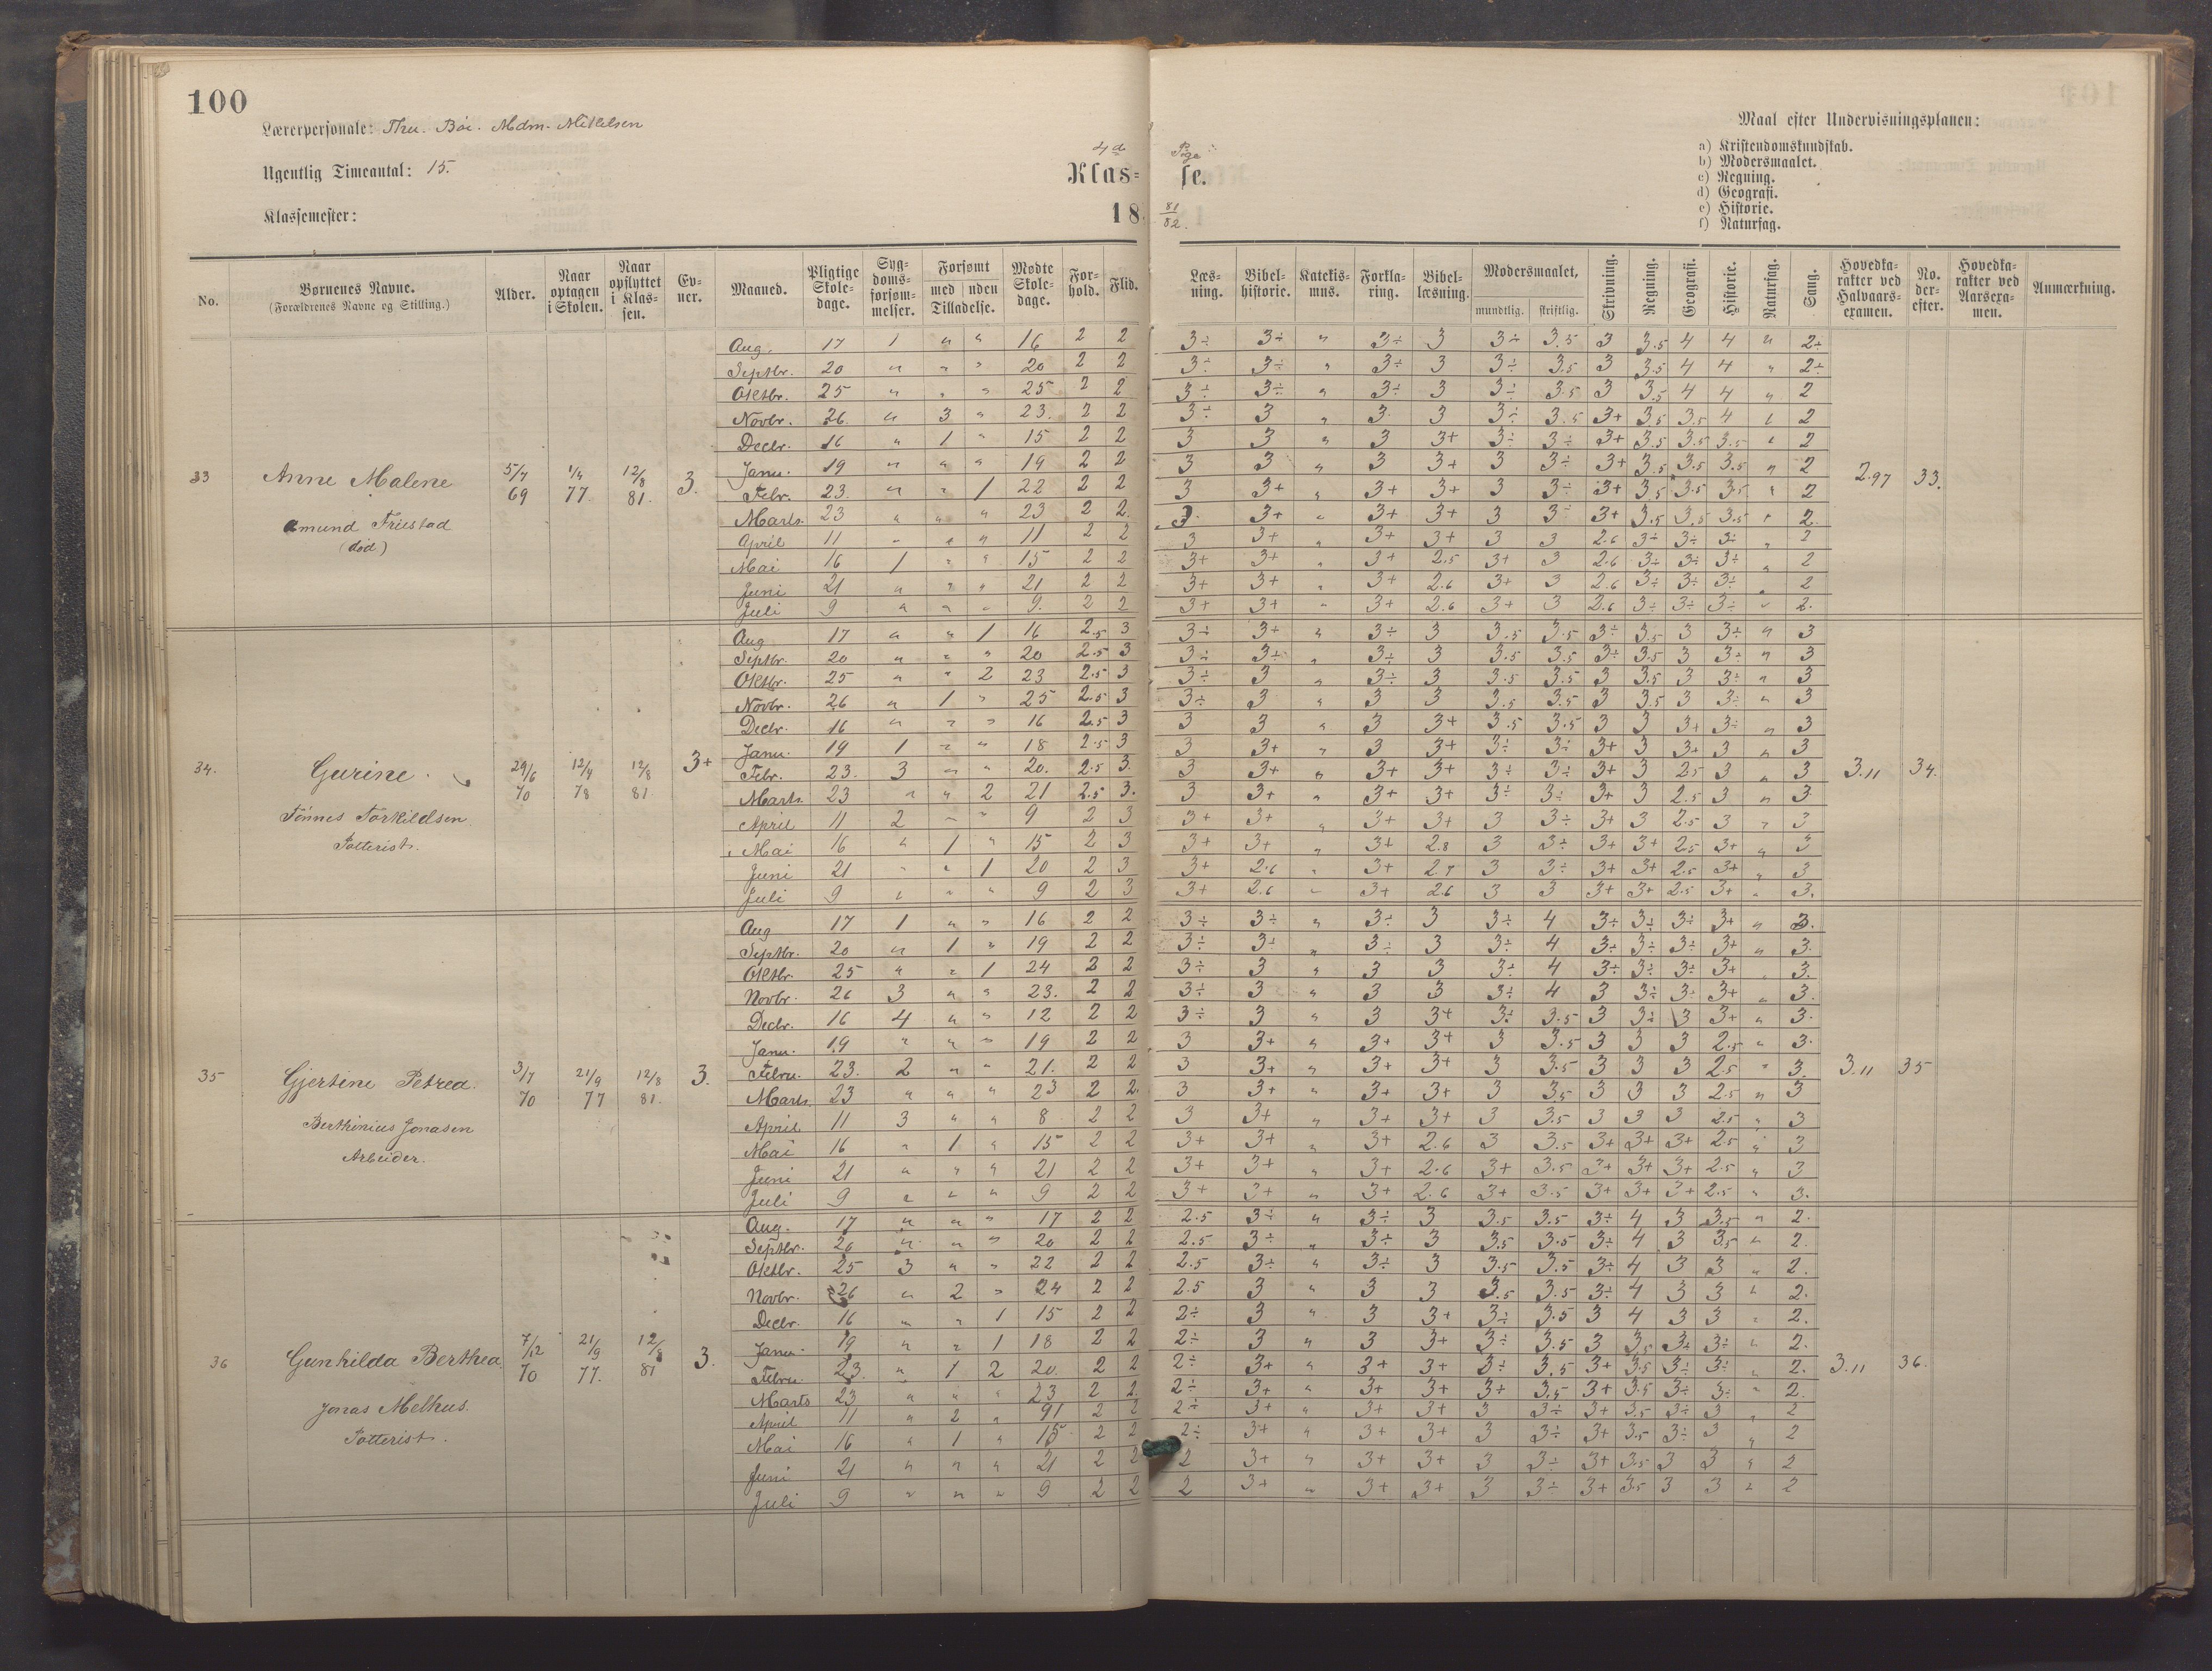 100
Lærerpersonale: Thu. Bøe. Mdm. Mikkelsen
Ugentlig Timeantal: 15.
Klassemester:
4de Pige
Klas= se.
18 81/82.
Maal efter Undervisningsplanen:
a) Kristendomskundskab.
b) Modersmaalet.
c) Regning.
d) Geografi.
e) Historie.
f) Naturfag.
No. | Børnenes Navne. (Forældrenes Navne og Stilling.) | Alder. | Naar optagen i Skolen. | Naar opflyttet i Klassen. | Evner. | Maaned. | Pligtige Skoledage. | Sygdomsforsømmelser. | Forsømt med uden Tilladelse. | Mødte Skoledage. | Forhold. | Flid. | Læsning. | Bibelhistorie. | Katekismus. | Forklaring. | Bibellæsning. | Modersmaalet, mundtlig. skriftlig. | Skrivning. | Regning. | Geografi. | Historie. | Naturfag. | Sang. | Hovedkarakter ved Halvaarsexamen. | No. derefter. | Hovedkarakter ved Aarsexamen. | Anmærkning.
33 Anne Malene 5/7 69 1/4 77 12/8 81. 3. 2.97 33.
Amund Friestad
(død)
Aug. 17 1 " " 16 2 2 3÷ 3÷ " 3÷ 3 3÷ 3.5 3 3.5 4 4 " 2÷
Septbr. 20 " " " 20 2 2 3÷ 3÷ " 3÷ 3 3÷ 3.5 3 3.5 4 4 " 2÷
Oktbr. 25 " " " 25 2 2 3÷ 3÷ " 3÷ 3 3÷ 3.5 3 3.5 4 4 " 2
Novbr. 26. " 3 " 23. 2 2 3÷ 3 " 3 3 3÷ 3.5 3+ 3.5 3.5 4 " 2
Decbr. 16 " 1 " 15 2 2 3 3 " 3 3+ 3÷ 3÷ 3+ 3.5 3.5 3.5 " 2
Janu. 19 " " " 19 2 2 3 3 " 3 3+ 3 3÷ 3+ 3.5 3.5 3.5 " 2
Febr. 23. " " 1 22 2 2 3 3+ " 3+ 3+ 3 3÷ 3+ 3.5 3.5 3.5 " 2
Marts. 23 " " " 23 2 2. 3. 3+ " 3+ 3+ 3 3÷ 3+ 3.5 3.5 3.5 " 2.
April 11 " " " 11 2 2 3 3+ " 3+ 3+ 3 3 2.6 3÷ 3÷ 3÷ " 2
Mai 16 1 " " 15 2 2 3+ 3+ " 3+ 2.5 3+ 3 2.6 3÷ 3÷ 3÷ " 2
Juni 21 " " " 21 2 2 3+ 3+ " 3+ 2.6 3+ 3 2.6 3÷ 3÷ 3÷ " 2
Juli 9 " " " 9. 2 2 3+ 3+ " 3+ 2.6 3+ 3 2.6 3÷ 3÷ 3÷ " 2.
34. Gurine. 29/6 70 12/4 78 12/8 81 3+ 3.11 34.
Tønnes Torkildsen.
Potterist.
Aug 17 " " 1 16 2.5 3 3÷ 3+ " 3÷ 3 3.5 3.5 3÷ 3.5 3 3÷ " 3
Septbr. 20 " " " 20 2.5 3 3÷ 3÷ " 3÷ 3 3.5 3.5 3÷ 3.5 3 3÷ " 3
Oktbr. 25 " " 2 23 2.5 3 3÷ 3 " 3÷ 3 3.5 3.5 3 3.5 3 3÷ " 3
Novbr. 26 " 1 " 25 2.5 3 3÷ 3 " 3 3 3.5 3.5 3 3.5 3 3÷ " 3
Decbr. 16 " " " 16 2.5 3 3 3 " 3 3+ 3.5 3.5 3 3 3+ 3÷ " 3
Janu. 19 1 " " 18 2.5 3 3 3+ " 3 3+ 3÷ 3÷ 3+ 3 3+ 3 " 3
Febr. 23. 3 " " 20. 2.5 3. 3 3+ " 3+ 3+ 3÷ 3÷ 3+ 3 2.5 3 " 3
Marts. 23 " " 2 21 2.5 3. 3 3+ " 3+ 3+ 3÷ 3÷ 3+ 3 2.5 3 " 3
April 11 2 " " 9 2 3 3+ 3+ " 3+ 3+ 3 3÷ 3+ 3 2.5 3 " 3
Mai 16 " 1 " 15 2 3 3+ 3+ " 3+ 2.8 3 3÷ 3+ 3+ 2.5 3+ " 3
Juni 21 " " 1 20 2 3 3+ 2.6 " 3+ 2.7 3 3÷ 3+ 3+ 2.5 3+ " 3
Juli 9 " " " 9 2 3 3+ 2.6 " 3+ 2.6 3 3 3+ 3+ 2.5 3+ " 3.
35 Gjertine Petrea. 3/7 70 21/9 77 12/8 81. 3. 3.11 35
Berthinius Jonasen
Arbeider.
Aug 17 1 " " 16 2 2 3÷ 3÷ " 3÷ 3 3÷ 4 3÷ 3÷ 3÷ 3+ " 3.
Septbr. 20 " 1 " 19 2 2 3÷ 3÷ " 3÷ 3 3÷ 4 3÷ 3÷ 3÷ 3+ " 3.
Oktbr. 25 " " 1 24 2 2 3÷ 3 " 3 3 3÷ 4 3÷ 3÷ 3÷ 3+ " 3.
Novbr. 26 3 " " 23. 2 2 3÷ 3 " 3 3 3÷ 4 3 3÷ 3÷ 3+ " 3.
Decbr. 16 4 " " 12 2 2 3÷ 3 " 3 3+ 3÷ 3.5 3 3÷ 3 3+ " 3.
Janu. 19 " " " 19 2 2 3 3+ " 3+ 3+ 3 3.5 3 3 3 2.5 " 3.
Febru. 23. 2 " " 21. 2 2 3 3+ " 3+ 3+ 3 3.5 3 3 3 2.5 " 3.
Marts. 23 " " " 23 2 2. 3 3+ " 3+ 3+ 3 3.5 3 3 3 2.5 " 3
April 11 3 " " 8 2 2 3 3+ " 3+ 3+ 3 3.5 3 3 3 2.5 " 3
Mai 16 " 1 " 15 2 2 3+ 3+ " 3+ 2.6 3 3.5 3+ 3+ 3+ 2.5 " 3
Juni 21 " " " 21 2 2 3+ 3+ " 3+ 2.6 3+ 3.5 3+ 3+ 3+ 2.5 " 3
Juli 9 " " " 9 2 2 3+ 3+ " 3+ 2.6 3+ 3.5 3+ 3+ 3+ 2.5 " 3.
36 Gunhilda Berthea. 7/12 70 21/9 77. 12/8 81 3. 3.11 36.
Jonas Melhus.
Potterist.
Aug. 17 " " " 17 2 2 2.5 3÷ " 3÷ 3 3.5 3.5 3÷ 4 3 3.5 " 2.
Septbr. 20 " " " 20 2 2 2.5 3÷ " 3÷ 3 3.5 3.5 3÷ 4 3 3.5 " 2.
Oktbr. 25 3 " " 22 2 2 2.5 3÷ " 3÷ 3 3.5 3.5 3÷ 4 3 3 " 2.
Novbr. 26 " 2 " 24 2 2 2.5 3 " 3 3 3.5 3.5 3÷ 4 3 3 " 2.
Decbr. 16 " " 1 15 2 2 2÷ 3 " 3 3+ 3÷ 3.5 3 4 3 3 " 2.
Janu. 19 " " 1 18 2 2 2÷ 3 " 3 3+ 3÷ 3.5 3 3.5 3÷ 3÷ " 2.
Febru. 23. " 1 2 20. 2 2 2÷ 3+ " 3+ 3+ 3÷ 3.5 3+ 3.5 3÷ 3÷ " 2.
Marts 23 " " " 23 2 2. 2÷ 3+ " 3+ 3+ 3÷ 3.5 3+ 3.5 3÷ 3÷ " 2.
April 11 " 2 " 91 2 2 2÷ 3+ " 3+ 3+ 3 3÷ 3+ 3.5 3÷ 3 " 2
Mai 16 " 1 " 15 2 2 2÷ 3+ " 3+ 3+ 3 3÷ 3+ 3.5 3÷ 3 " 2
Juni 21 " " " 21 2 2 2 3+ " 3+ 3+ 3 3÷ 3+ 3.5 3 3 " 2
Juli 9 " " " 9 2 2 2 3+ " 3+ 3+ 3 3÷ 3+ 3.5 3 3 " 2